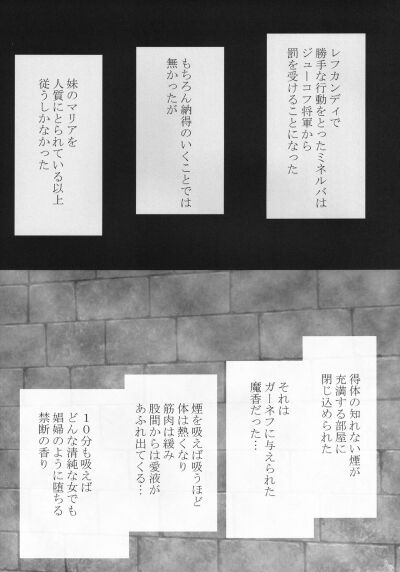 レフカンディで
勝手な行動をとったミネルバは
ジューコフ将軍から
罰を受けることになった
もちろん納得のいくことでは
無かったが
妹のマリアを
人質にとられている以上
従うしかなかった
得体の知れない煙が
充満する部屋に
閉じ込められた
それは
ガーネフに与えられた
魔香だった…
煙を吸えば吸うほど
体は熱くなり
筋肉は緩み
股間からは愛液が
あふれ出てくる…
10分も吸えば
どんな清純な女でも
娼婦のように堕ちる
禁断の香り